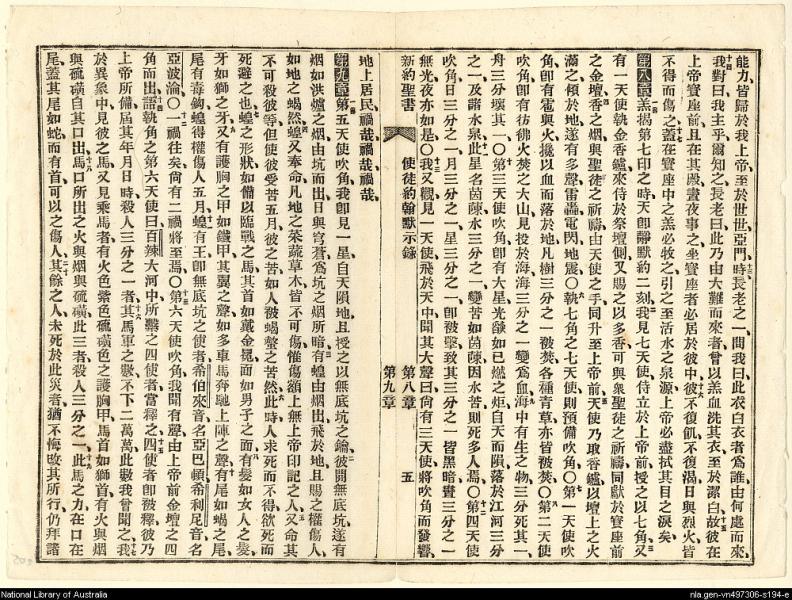 能力、皆歸於我上帝、至於世世、亞門、時長老之一、問我曰、此衣白衣者爲誰、由何處而來、
我對曰、我主乎、爾知之、長老曰、此乃由大難而來者、曾以羔血洗其衣、至於潔白、故彼在
上帝寶座前、且在其殿晝夜事之、坐寶座者必居於彼中、彼不復飢、不復渴、日與烈火皆
不得而傷之、蓋在寶座中之羔必牧之、引之至活水之泉源、上帝必盡拭其目之淚矣、
第八章 羔揭第七印之時、天卽靜默、約二刻、我見七天使侍立於上帝前、授之以七角、又
有一天使執金香鑪、來侍於祭壇側、又賜之以多香、可與衆聖徒之祈禱、同獻於寶座前
之金壇、香之烟與聖徒之祈禱、由天使之手、同升至上帝前、天使乃取香鑪、以壇上之火
滿之、傾於地、遂有多聲雷轟電閃地震〇執七角之七天使則預備吹角〇第一天使吹
角、卽有雹與火攙以血而落於地、凡樹三分之一被焚、各種青草亦皆被焚〇第二天使
吹角、卽有彷彿火焚之大山見投於海、海三分之一變爲血、海中有生之物三分死其一、
舟三分壞其一〇第三天使吹角、卽有大星光𦦨如已燃之炬、自天而隕、落於江河三分
之一、及諸水泉、此星名茵蔯、水三分之一變苦如茵蔯、因水苦則死多人焉〇第四天使
吹角、日三分之一、月三分之一、星三分之一、卽被擊、致其三分之一皆黑暗、晝三分之一
無光、夜亦如是〇我又觀見一天使飛於天中、聞其大聲曰、尙有三天使將吹角而發響、
新約聖書 使徒約翰默示錄 第八章 第九章 五
地上居民、禍哉禍哉禍哉
第九章 第五天使吹角、我卽見一星、自天隕地、且授之以無底坑之鑰、彼開無底坑、遂有
烟如洪爐之烟、由坑而出、日與穹蒼爲坑之烟所暗、有蝗由烟出、飛於地、且賜之權傷人、
如地之蝎然、蝗又奉命、凡地之菜蔬草木、皆不可傷、惟傷額上無上帝印記之人、又命其
不可殺彼等、但使彼受苦五月、彼之苦如人被蝎螫之苦然、此時人求死而不得、欲死而
死避之也、蝗之形狀、如備以臨戰之馬、其首如戴金冕、面如男子之面、有髮如女人之髮、
牙如獅之牙、又有護胸之甲如鐵甲、其翼之聲如多車馬奔馳上陣之聲、有尾如蝎之尾、
尾有毒鉤、蝗得權傷人五月、蝗有王、卽無底坑之使者、希伯來音名亞巴頓、希利尼音名
亞波淪〇一禍往矣、尙有二禍將至焉〇第六天使吹角、我聞有聲由上帝前金壇之四
角而出、語執角之第六天使曰、百辣大河中所繫之四使者、當釋之、四使者卽被釋、彼乃
上帝所備、屆其年月日時、殺人三分之一者、其馬軍之數、不下二萬萬、此數我曾聞之、我
於異象中、見彼之馬、又見乘馬者、有火色紫色硫磺色之護胸甲、馬首如獅首、有火與烟
與硫磺自其口出、馬口所出之火與烟與硫磺、此三者殺人三分之一、此馬之力在口在
尾、蓋其尾如蛇、而有首、可以之傷人、其餘之人、未死於此災者、猶不悔改其所行、仍拜諸
National Library of Australia
nla.gen-vn497306-s194-e